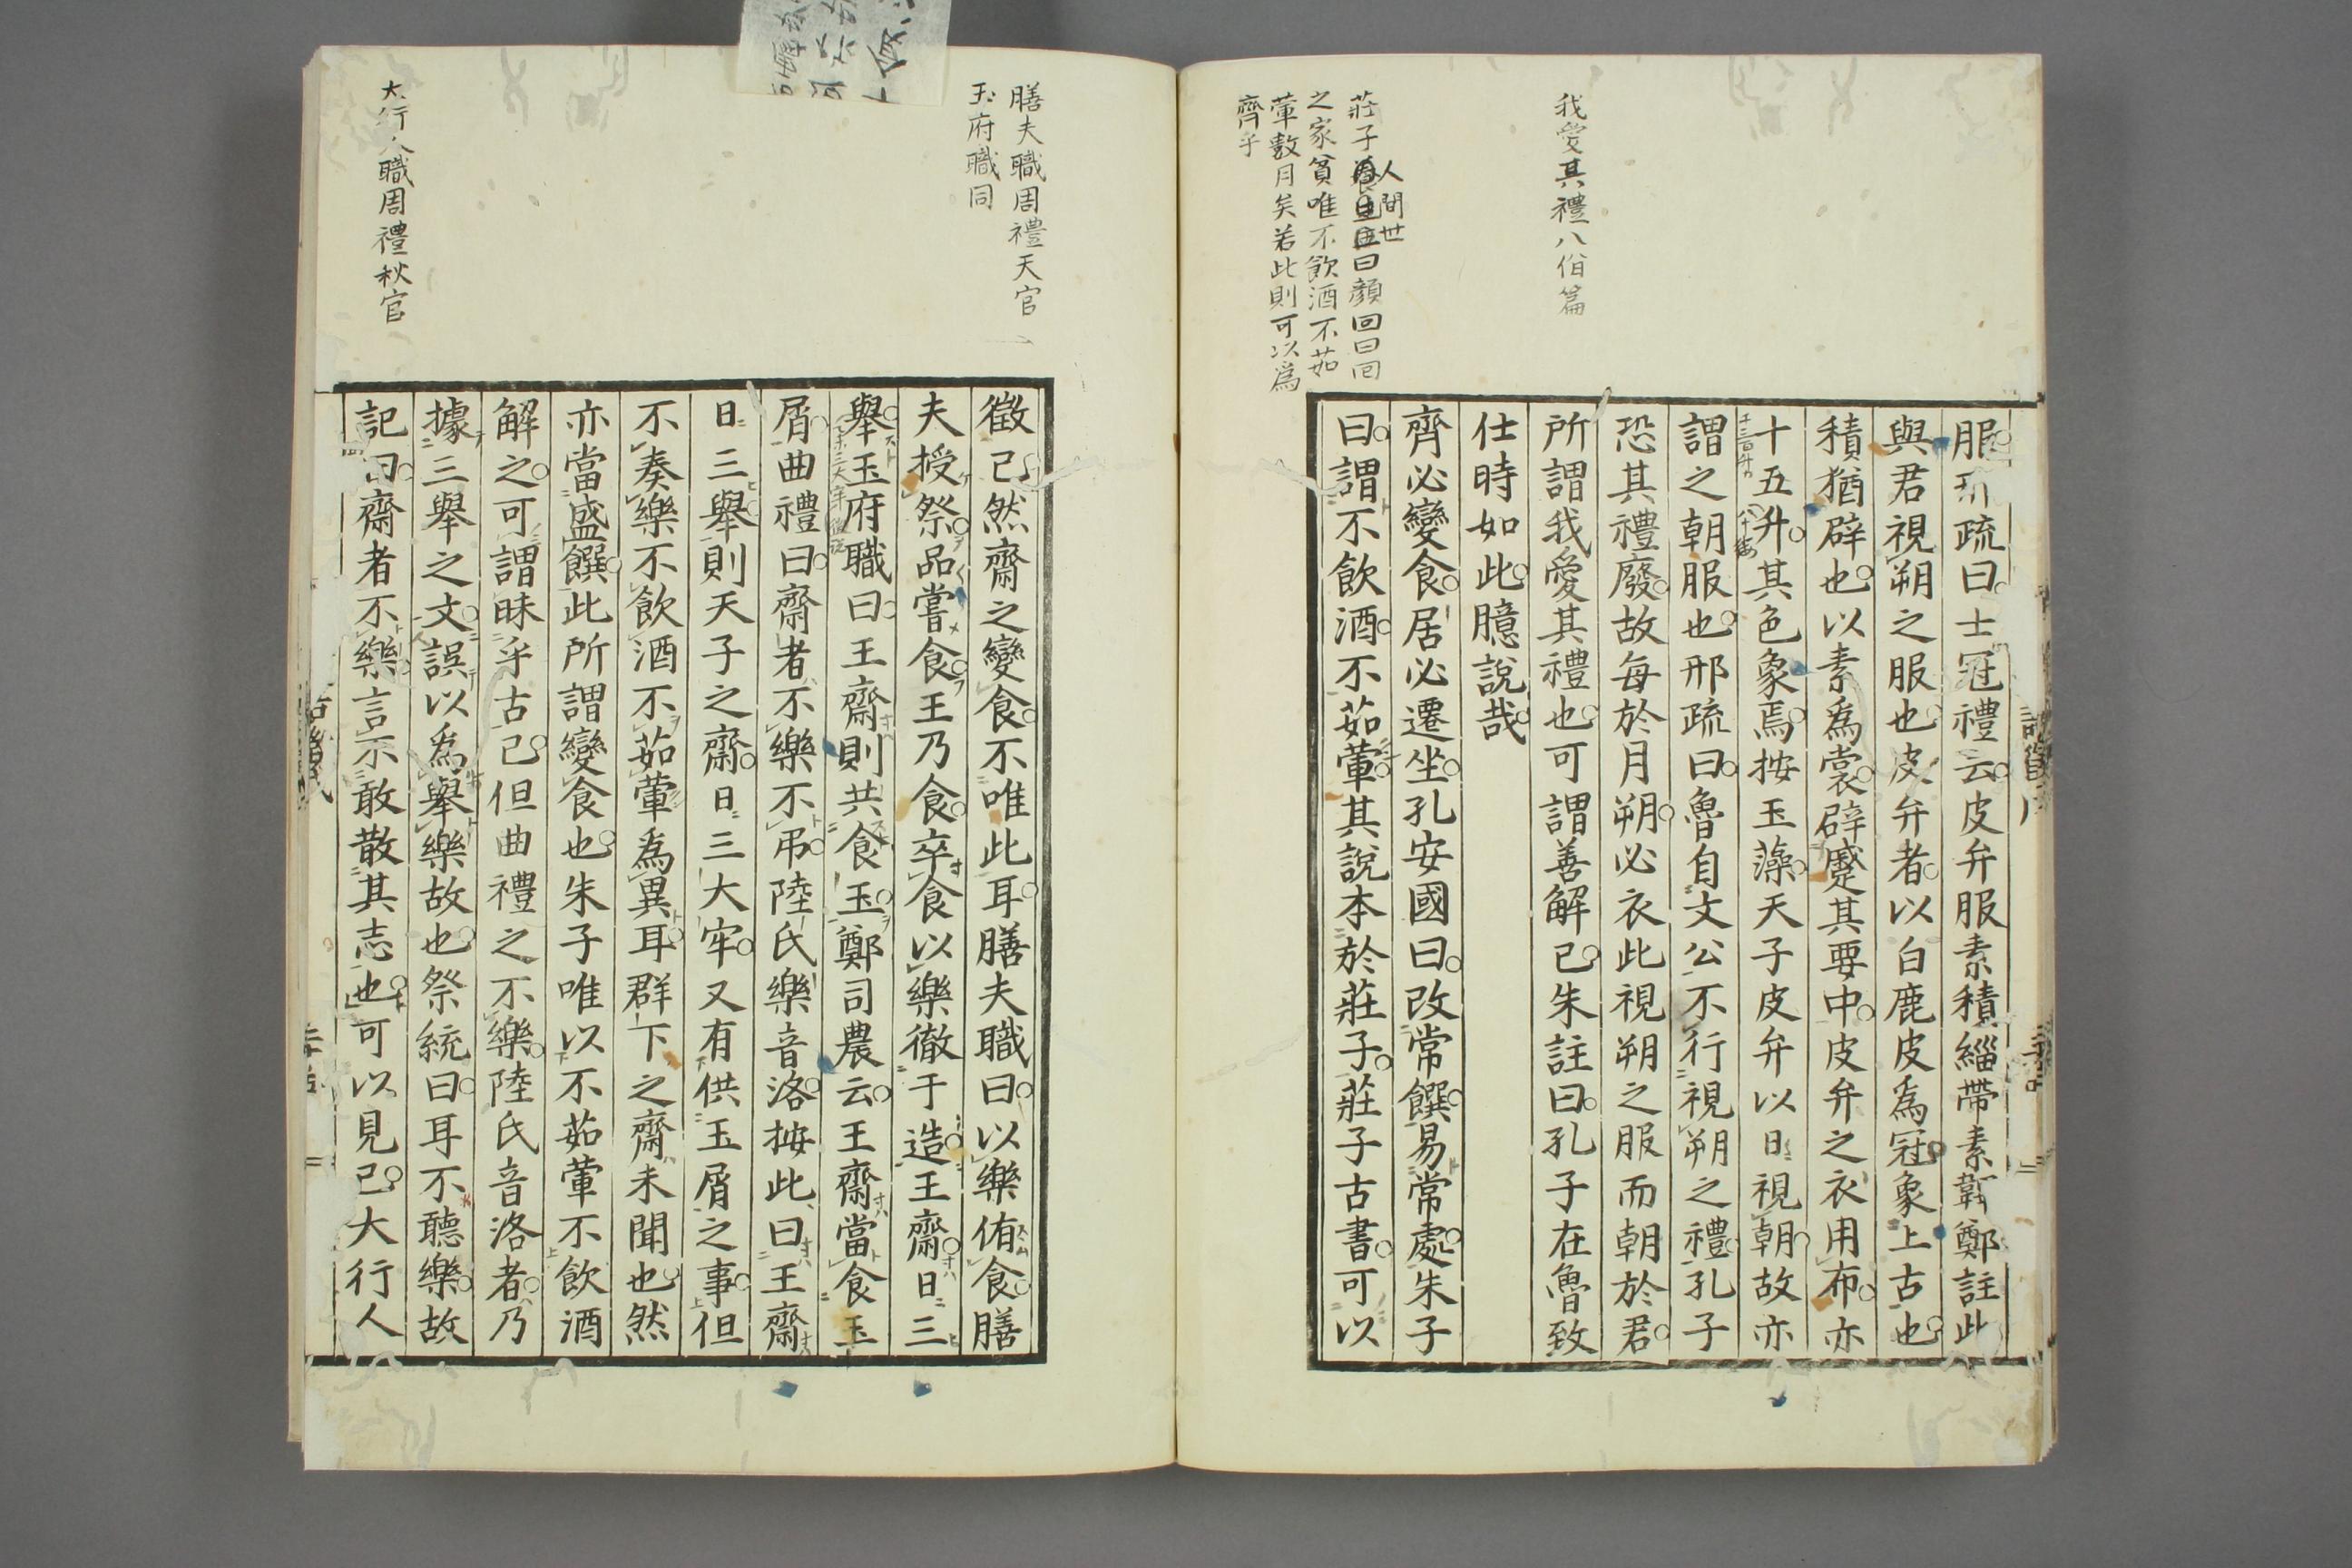 我愛其禮八佾篇
莊子人間世曰顏回曰回
之家貧唯不飲酒不茹
葷數月矣若此則可以為
齊乎
服邢疏曰士冠禮云皮弁服素積緇帶素韠鄭註此
與君視朔之服也皮弁者以白鹿皮爲冠象上古也
積猶辟也以素爲裳辟蹙其要中皮弁之衣用布亦
十五升其色象焉按玉藻天子皮弁以日視朝故亦
謂之朝服也邢疏曰魯自文公不行視朔之禮孔子
恐其禮廢故每於月朔必衣此視朔之服而朝於君
所謂我愛其禮也可謂善解已朱註曰孔子在魯致
仕時如此臆說哉
齊必變食居必遷坐孔安國曰改常饌易常處朱子
曰謂不飲酒不茹葷其說本於莊子莊子古書可以
膳夫職周禮天官
玉府職同
大行人職周禮秋官
徵已然齋之變食不唯此耳膳夫職曰以樂侑食膳
夫授祭品嘗食王乃食卒食以樂徹于造王齋日三
舉玉府職曰王齋則共食玉鄭司農云王齋當食玉
屑曲禮曰齋者不樂不吊陸氏樂音洛按此曰王齋
日三舉則天子之齋日三大牢又有供玉屑之事但
不奏樂不飲酒不茹葷爲異耳群下之齋未聞也然
亦當盛饌此所謂變食也朱子唯以不茹葷不飲酒
解之可謂昧乎古已但曲禮之不樂陸氏音洛者乃
據三舉之文誤以爲舉樂故也祭統曰耳不聽樂故
記曰齋者不樂言不敢散其志也可以見已大行人